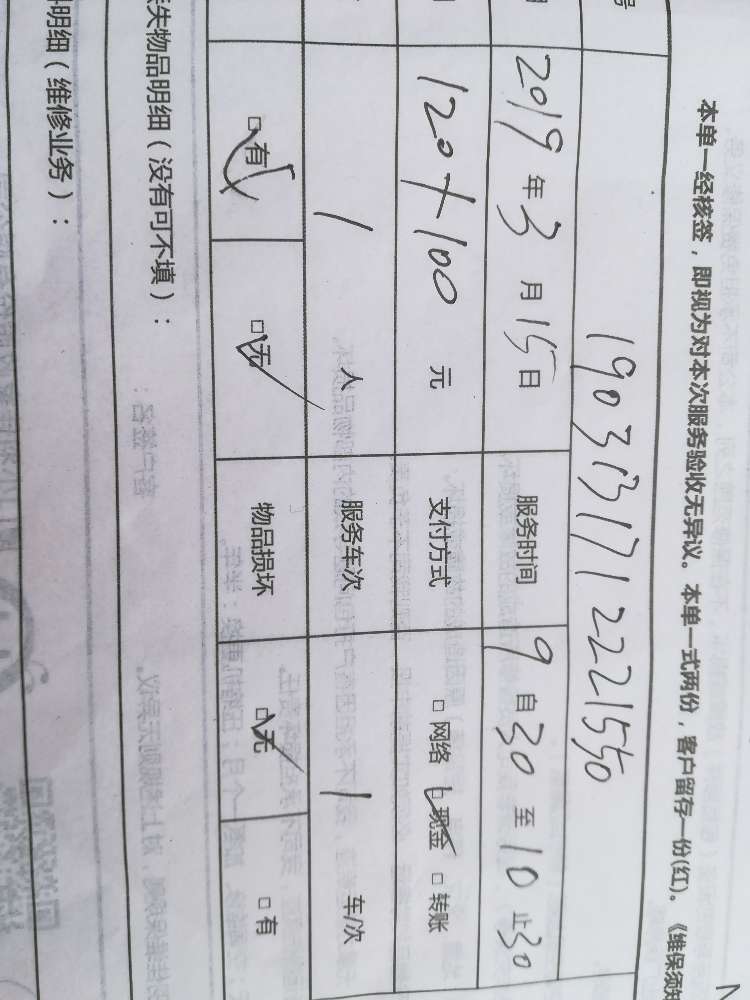 本单一经核签，即视为对本次服务验收无异议。本单一式两份，客户留存一份(红)。《维保须知
号 1903131712221550
2019年3月15日 服务时间 9自30至10止30
120+100 元 支付方式 □网络 □现金 □转账
1 人 服务车次 1 车/次
□有 □无 物品损坏 □无 □有
失物品明细（没有可不填）：
明细（维修业务）：